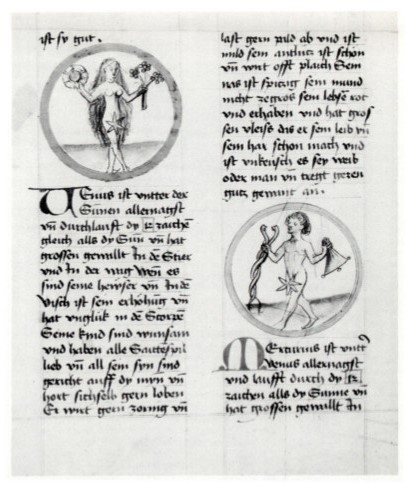 ist sy gut.
Venus ist vntter der
Sunnen allernagst
vn̄ durchlaufft dy 12 zaichē
gleich alls dy Sun vn̄ hat
grossen gewallt In de Stier
vnd In der wag Wen̄ es
sind seine hewser vn̄ In dē
visch ist sein erhohūg vn̄
hat vnglük in dē Scorpē
Seine kind sind
vnd haben alle
lieb vn̄ all sein syn sind
gericht auff dy vn̄
hort sichselb gern loben
Er wirt gern zornig vn̄
last gern pald ab vnd ist
mild sein antlutz ist schon
vn̄ wirt offt plaich Sein
nas ist spiczig sein mund
nicht zegros sein lebsē rot
vnd erhaben vnd hat gros
sen vleiss das er sein leib vn̄
sein har schon mach vnd
ist vnkeusch es sey weib
oder man vn̄ tregt geren
gutz gewant an.
Mercurius ist vntt
venus allernagst
vnd laufft durch dy 12
zaichen alls dy Sunne vn̄
hat grossen gewallt In